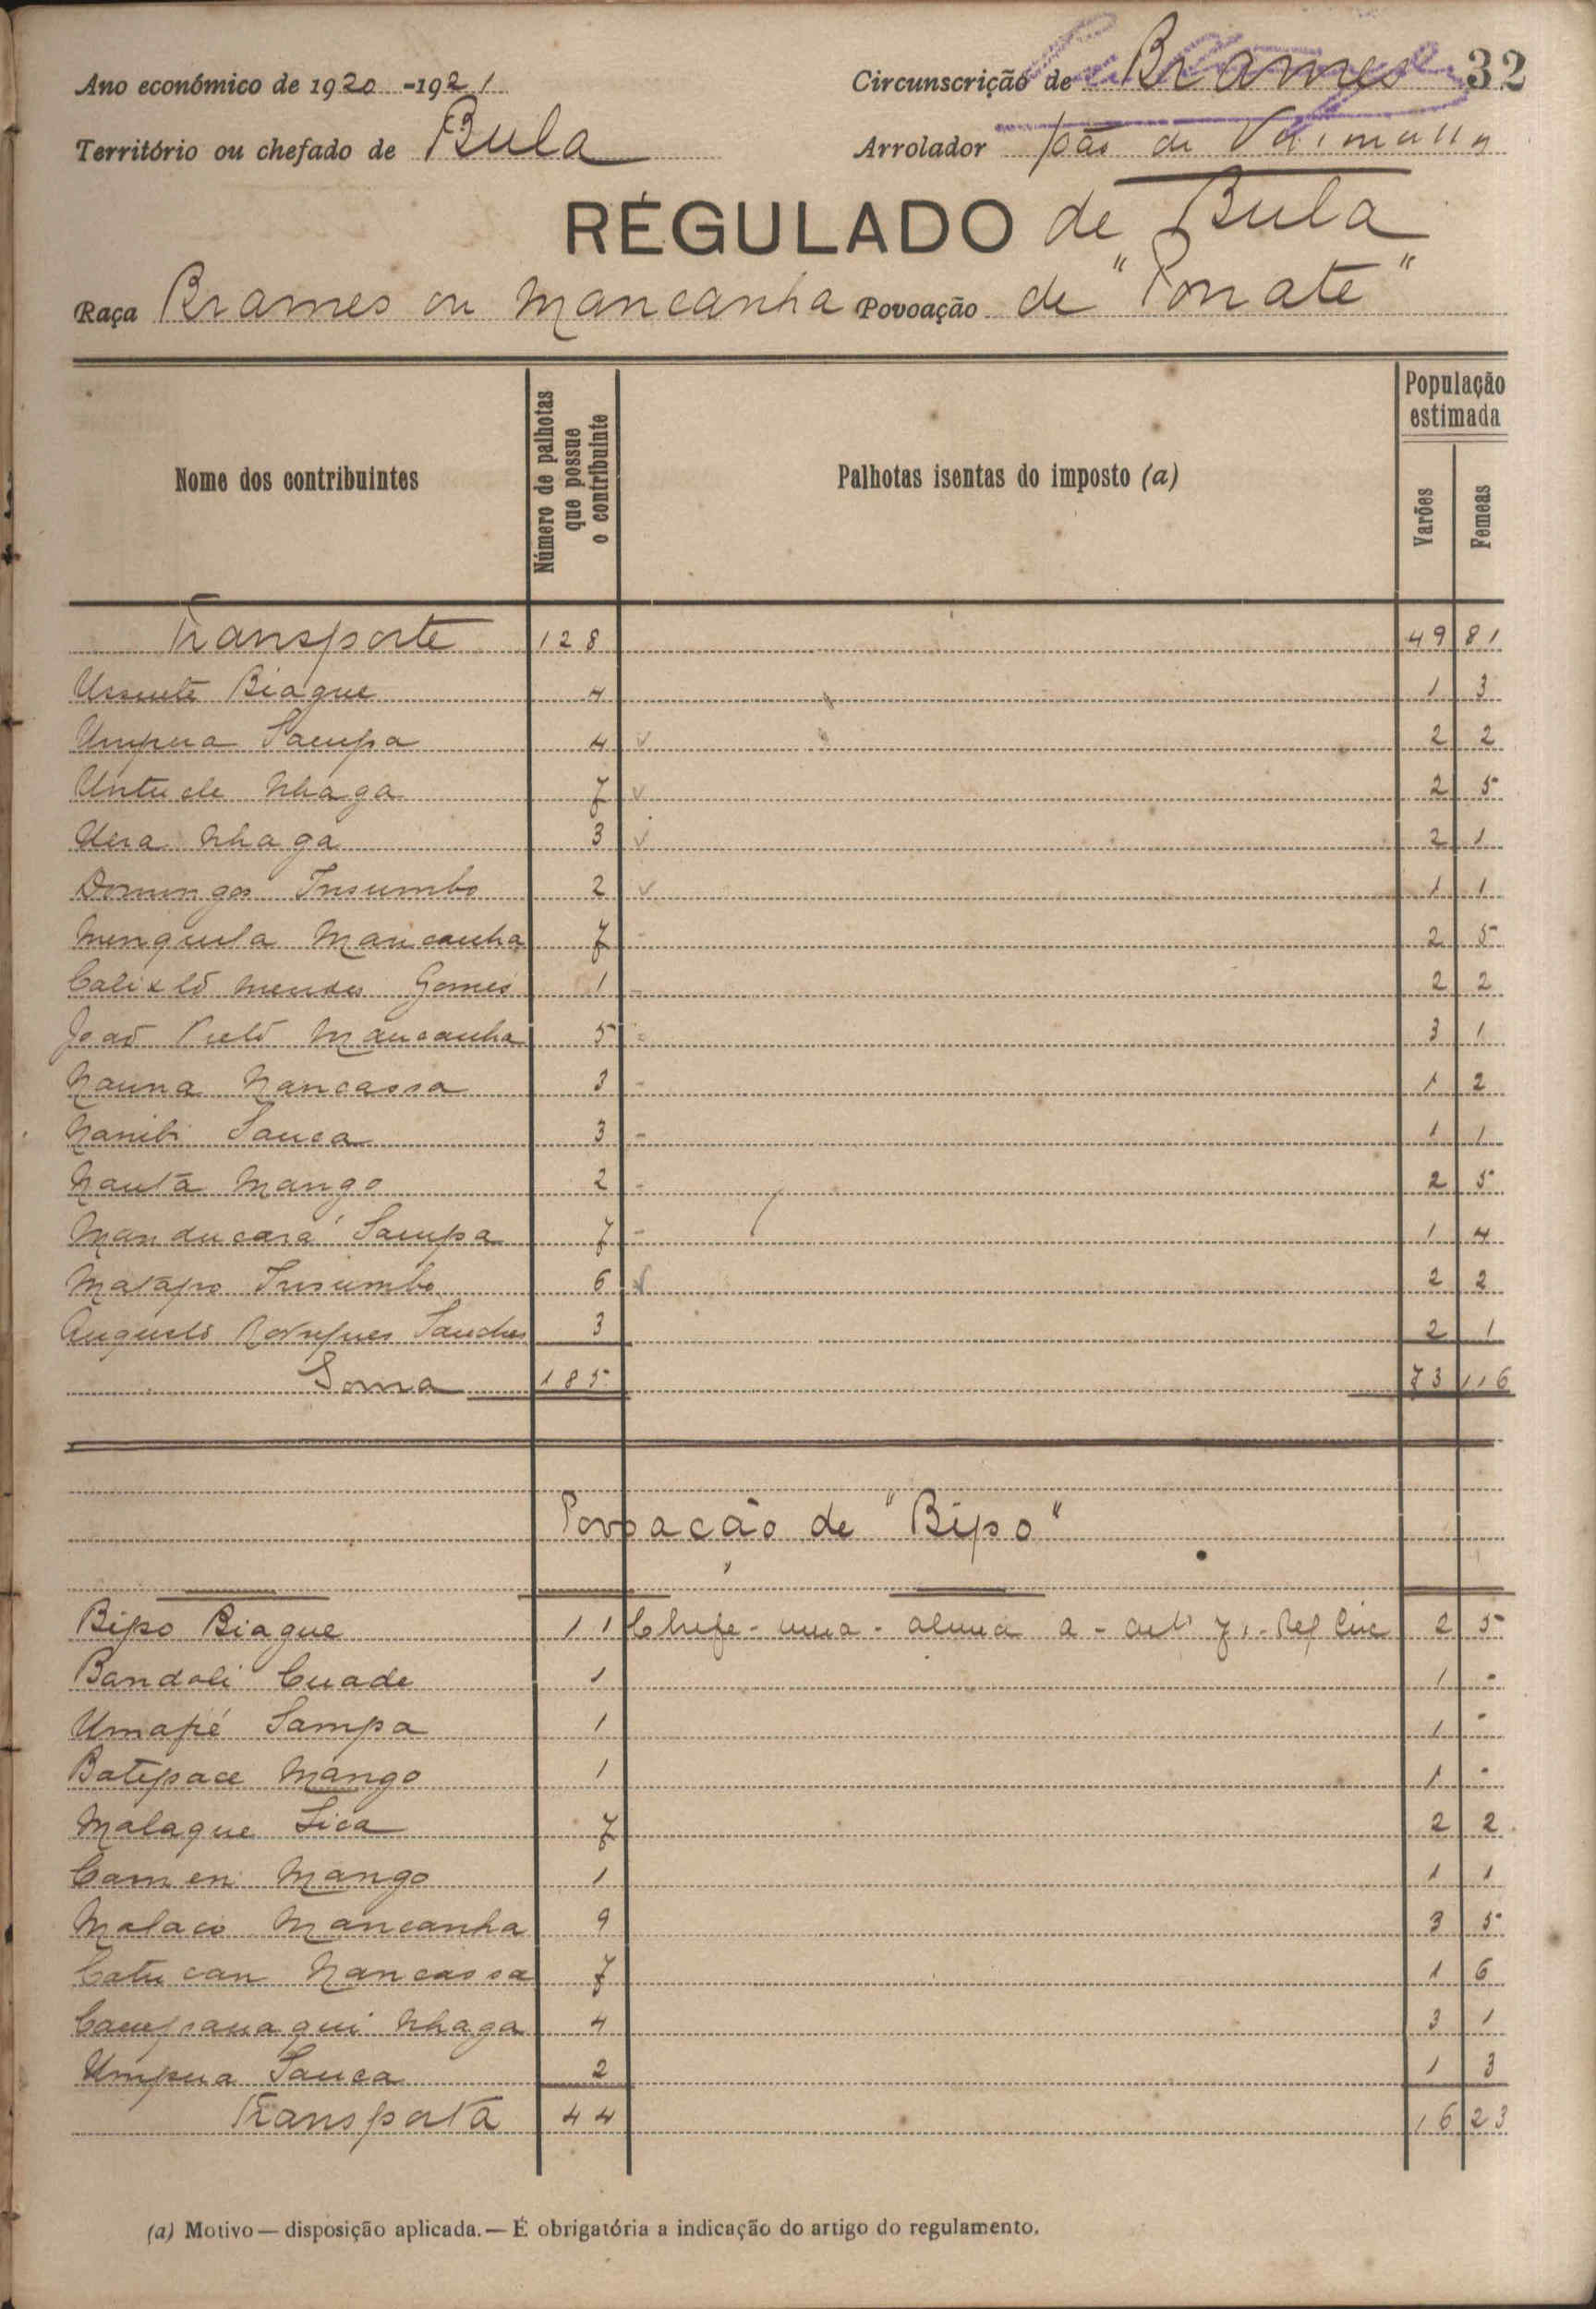 Ano económico de 1920-1921 Circunscrição de Brames 32
Território ou chefado de Bula Arrolador João de
RÉGULADO de Bula
Raça Brames ou Mancanha Povoação de "Ponate"
Nome dos contribuintes Número de palhotas que possue o contribuinte Palhotas isentas do imposto (a) População estimada Varões Femeas
Transporte 128 49 81
Biague 4 1 3
Umpua Sampa 4 2 2
Untude Nhaga 7 2 5
Uera Nhaga 3 2 1
Domingos Insumbo 2 1 1
Menquila Mancanha 7 2 5
Calixtó Mendes Gomes 1 2 2
João Mancanha 5 3 1
Nauna Nancassa 3 1 2
Nanibi Sanca 3 1 1
Nautá Mango 2 2 5
Manducará Sampa 7 1 4
Matápo Insumbo 6 2 2
Rodrigues Sanches 3 2 1
Soma 185 73 116
Povoação de "Bipo"
Bipo Biague 11 Chefe - uma - a - 2 5
Bandoli Cuade 1 1 -
Umapé Sampa 1 1 -
Batepace Mango 1 1 -
Malaque Lica 7 2 2
Camen Mango 1 1 1
Malaco Mancanha 9 3 5
Catucan Nancassa 7 1 6
Campanaqui Nhaga 4 3 1
Umpua Sanca 2 1 3
Transporta 44 16 23
(a) Motivo — disposição aplicada. — É obrigatória a indicação do artigo do regulamento.